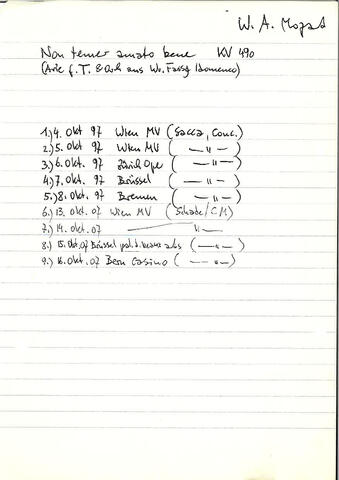 W. A. Mozart
Non temer amato bene KV 490
(Arie f. T. & Orch aus Wr. Fassg Idomeneo)
1.) 4. Okt 97 Wien MV (Sacca, Conc.)
2.) 5. Okt. 97 Wien MV ( — " — )
3.) 6. Okt. 97 Zürich Oper ( — " — )
4.) 7. Okt. 97 Brüssel ( — " — )
5.) 8. Okt. 97 Bremen ( — " — )
6.) 13. Okt. 07 Wien MV (Schade/CM)
7.) 14. Okt. 07 — " —
8.) 15. Okt. 07 Brüssel pal. d. beaux arts ( — " — )
9.) 16. Okt. 07 Bern Casino ( — " — )